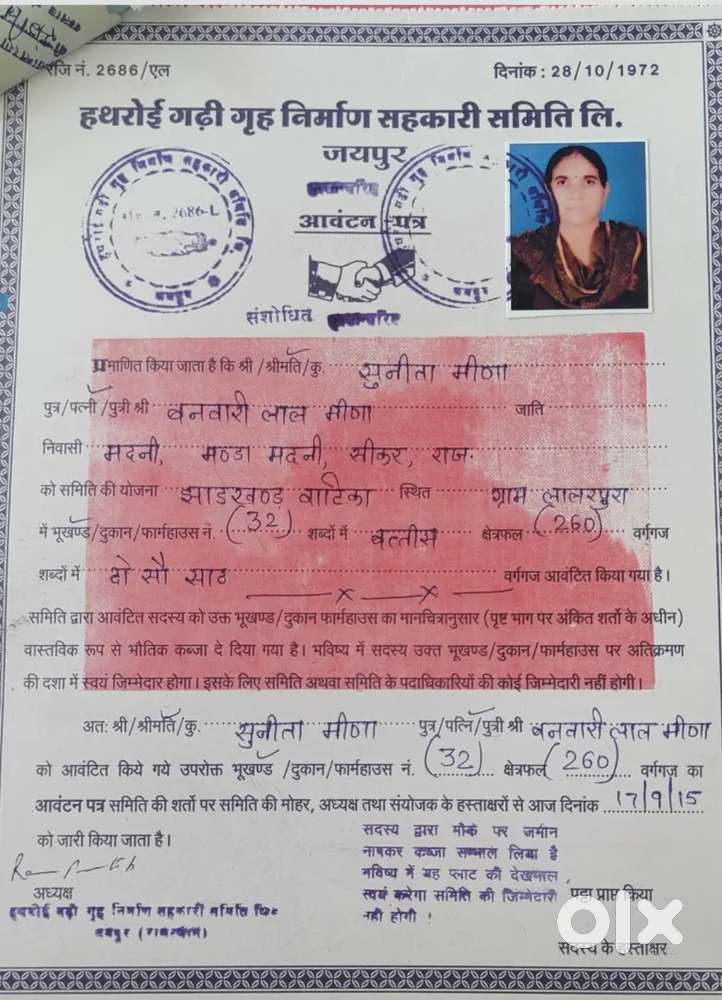 रजि नं. 2686/एल
दिनांक : 28/10/1972
हथरोई गढ़ी गृह निर्माण सहकारी समिति लि.
जयपुर
आवंटन पत्र
संशोधित
प्रमाणित किया जाता है कि श्री /श्रीमति/कु. सुनीता मीणा
पुत्र/पत्नी/पुत्री श्री बनवारी लाल मीणा जाति
निवासी मदनी, मण्डा मदनी, सीकर, राज.
को समिति की योजना झाडखण्ड वाटिका स्थित ग्राम लालरपुरा
में भूखण्ड/दुकान/फार्महाउस नं. (32) शब्दों में बत्तीस क्षेत्रफल (260) वर्गगज
शब्दों में दो सौ साठ वर्गगज आवंटित किया गया है।
समिति द्वारा आवंटित सदस्य को उक्त भूखण्ड/दुकान फार्महाउस का मानचित्रानुसार (पृष्ट भाग पर अंकित शर्तो के अधीन)
वास्तविक रूप से भौतिक कब्जा दे दिया गया है। भविष्य में सदस्य उक्त भूखण्ड/दुकान/फार्महाउस पर अतिक्रमण
की दशा में स्वयं जिम्मेदार होगा। इसके लिए समिति अथवा समिति के पदाधिकारियों की कोई जिम्मेदारी नहीं होगी।
अतः श्री/श्रीमति/कु. सुनीता मीणा पुत्र/पत्नि/पुत्री श्री बनवारी लाल मीणा
को आवंटित किये गये उपरोक्त भूखण्ड /दुकान/फार्महाउस नं. (32) क्षेत्रफल (260) वर्गगज का
आवंटन पत्र समिति की शर्तो पर समिति की मोहर, अध्यक्ष तथा संयोजक के हस्ताक्षरों से आज दिनांक 17/9/15
को जारी किया जाता है।
सदस्य द्वारा मौके पर जमीन
नापकर कब्जा सम्भाल लिया है
भविष्य में यह प्लाट की देखभाल
स्वयं करेगा समिति की जिम्मेदारी
नही होगी !
अध्यक्ष
हथरोई गढ़ी गृह निर्माण सहकारी समिति लि०
जयपुर (राजस्थान)
पट्टा प्राप्त किया
सदस्य के हस्ताक्षर
olx